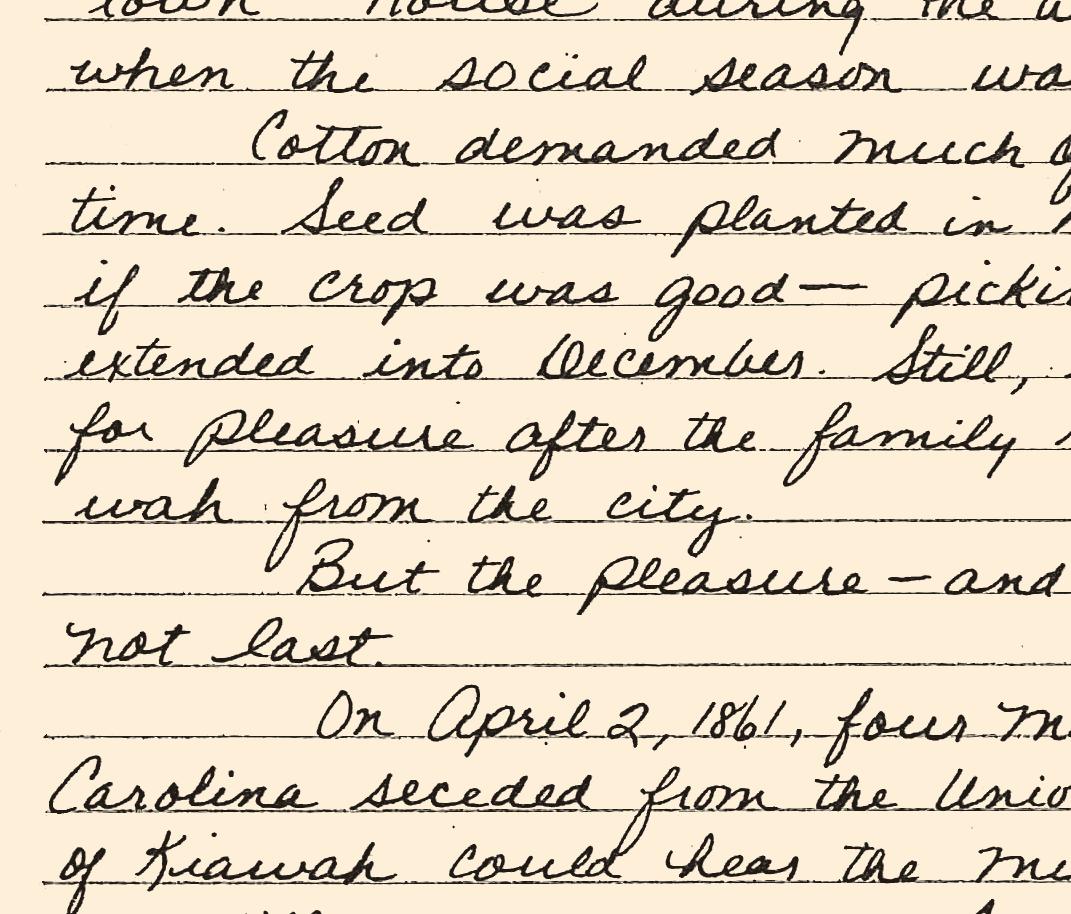 town house during the
when the social season
Cotton demanded much
time. Seed was planted in
if the crop was good—
extended into December. Still,
for pleasure after the family
wah from the city.
But the pleasure — and
not last.
On April 2, 1861, four
Carolina seceded from the
of Kiawah could hear the